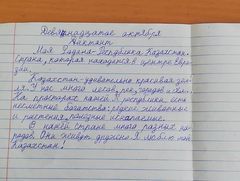 Девятнадцатое октября
Диктант
Моя Родина - Республика Казахстан.
Страна, которая находится в центре Евра
зии.
Казахстан - удивительно красивая зем
ля. У нас много лесов, рек, городов и
На просторах нашей республики есть
несметные богатства: редкие животные
и растения, полезные ископаемые.
В нашей стране много разных на
родов. Они живут дружно. Я люблю мой
Казахстан!